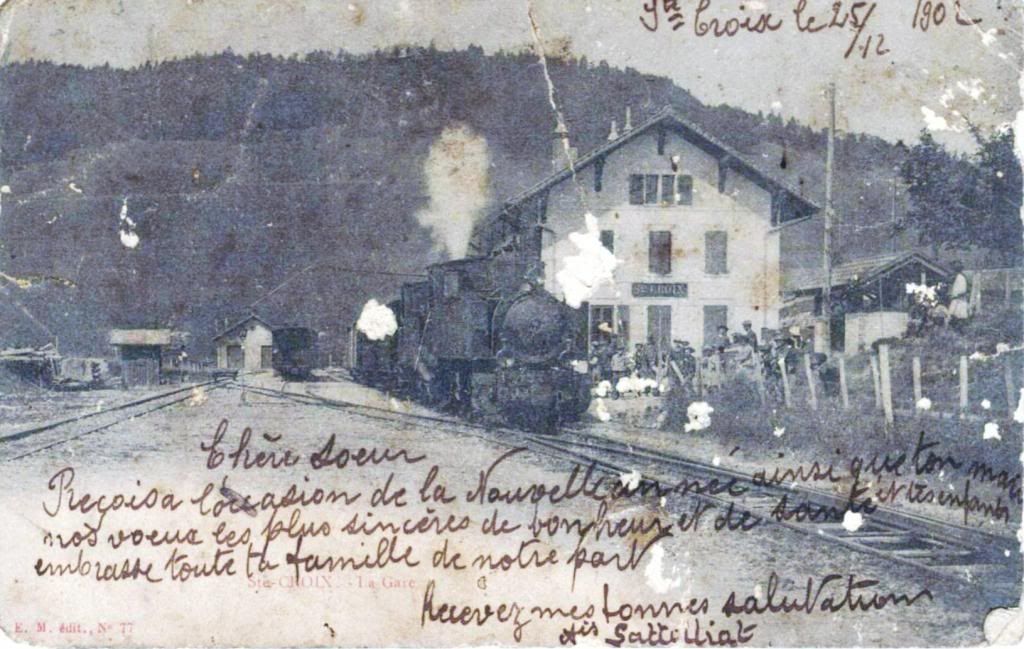 Ste Croix le 25/12 1902
STE CROIX
Chère soeur
Reçois a l'occasion de la Nouvelle année ainsi que ton mari
et tes enfants
nos voeux les plus sincères de bonheur et de santé
embrasse toute ta famille de notre part
Ste-CROIX. - La Gare
Recevez mes bonnes salutation
E. M. édit., No 77